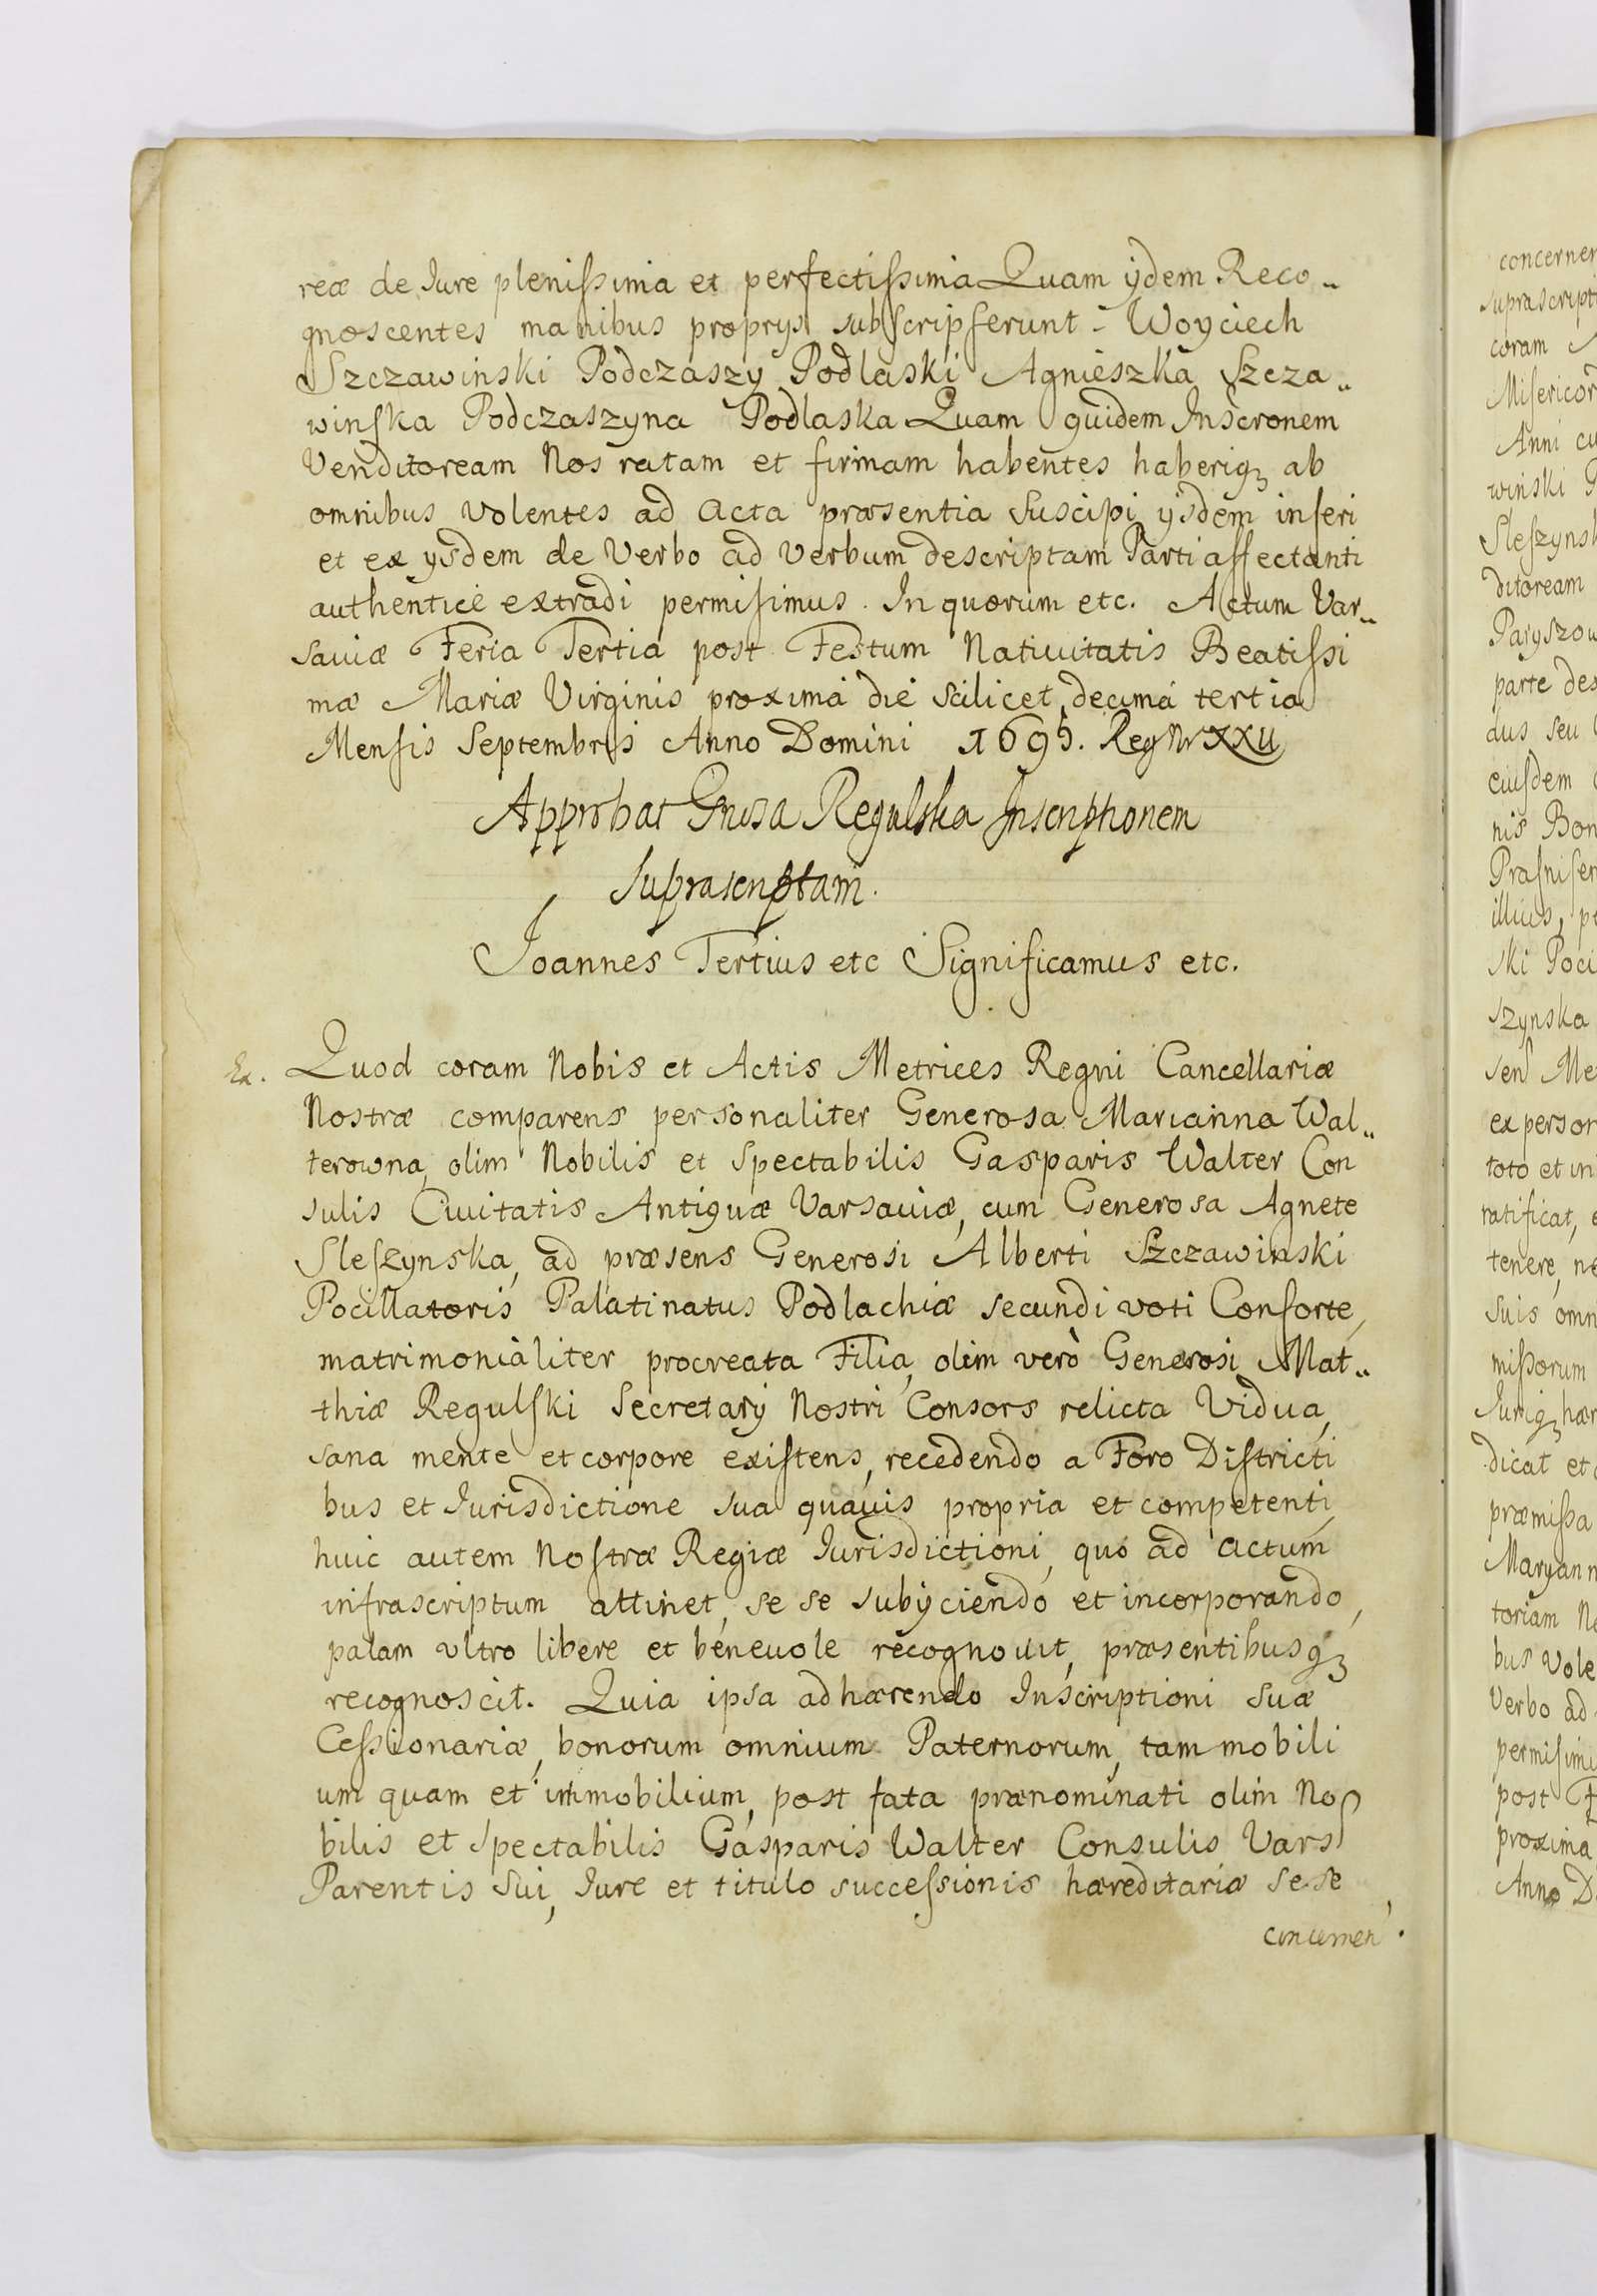 reæ de Iure plenissima et perfectissima Quam ijdem Reco„
gnoscentes manibus proprys subscripserunt - Woyciech
Szczawinski Podczaszy Podlaski Agnieszka Szcza„
winska Podczaszyna Podlaska Quam quidem Inscronem
Venditoream Nos ratam et firmam habentes haberiqꝫ ab
omnibus volentes ad Acta præsentia suscipi ysdem inseri
et ex ysdem de Verbo ad Verbum descriptam Parti affectanti
authenticè extradi permisimus. In quorum etc. Actum Var„
sauiæ Feria Tertia post Festum Natiuitatis Beatissi
mæ Mariæ Virginis proximá die scilicet decimá tertia
Mensis Septembris Anno Domini 1695. Reg Nr XXII
Approbat Gnosa Regulska Inscriptionem
suprascriptam.
Joannes Tertius etc Significamus etc.
Ex. Quod coram Nobis et Actis Metrices Regni Cancellariæ
Nostræ comparens personaliter Generosa Marianna Wal„
terowna, olim Nobilis et Spectabilis Gasparis Walter Con
sulis Ciuitatis Antiquæ Varsauiæ, cum Generosa Agnete
Sleszynska, ad præsens Generosi Alberti Szczawinski
Pocillatoris Palatinatus Podlachiæ secundi voti Consorte,
matrimonialiter procreata Filia, olim verò Generosi Mat„
thiæ Regulski Secretarÿ Nostri Consors relicta Vidua,
sana mente et corpore existens, recedendo a Foro Districti
bus et Iurisdictione sua quauis propria et competenti,
huic autem Nostræ Regiæ Iurisdictioni, quó ad actum
infrascriptum attinet, se se subÿciendo et incorporando,
palam vltro libere et beneuole recognouit, præsentibusqꝫ
recognoscit. Quia ipsa adhærendo Inscriptioni suæ
Cessionariæ, bonorum omnium Paternorum, tam mobili
um quam et immobilium, post fata prænominati olim No
bilis et Spectabilis Gasparis Walter Consulis Vars
Parentis sui, Iure et titulo successionis hæreditariæ se se
concernen.
concernen
suprascript
coram
Misericor
Anni cu
winski P
Sleszynsk
ditoream
Paryszow
parte des
dus seu
eiusdem
nis Bon
Prasniscen
illius, p
ski Poci
szynska
sen Me
ex person
toto et in
ratificat, e
tenere, ne
suis omn
missorum
Iuriqꝫ hær
dicat et
præmissa
Maryann
toriam No
bus vole
Verbo ad
permisimu
post F
proxima
Anno Do